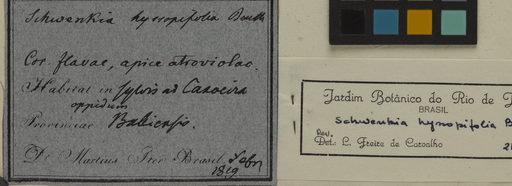 Schwenkia hyssopifolia Benth
Cor. flavae, apice atroviolac.
Habitat in sylvis ad Caxoeira
oppidum
Provinciae Bahiensis.
Dr. Martius Iter Brasil. Febr
1819
Jardim Botânico do Rio de J
BRASIL
Schwenkia hyssopifolia B
Rev.
Det. L. Freire de Carvalho
2